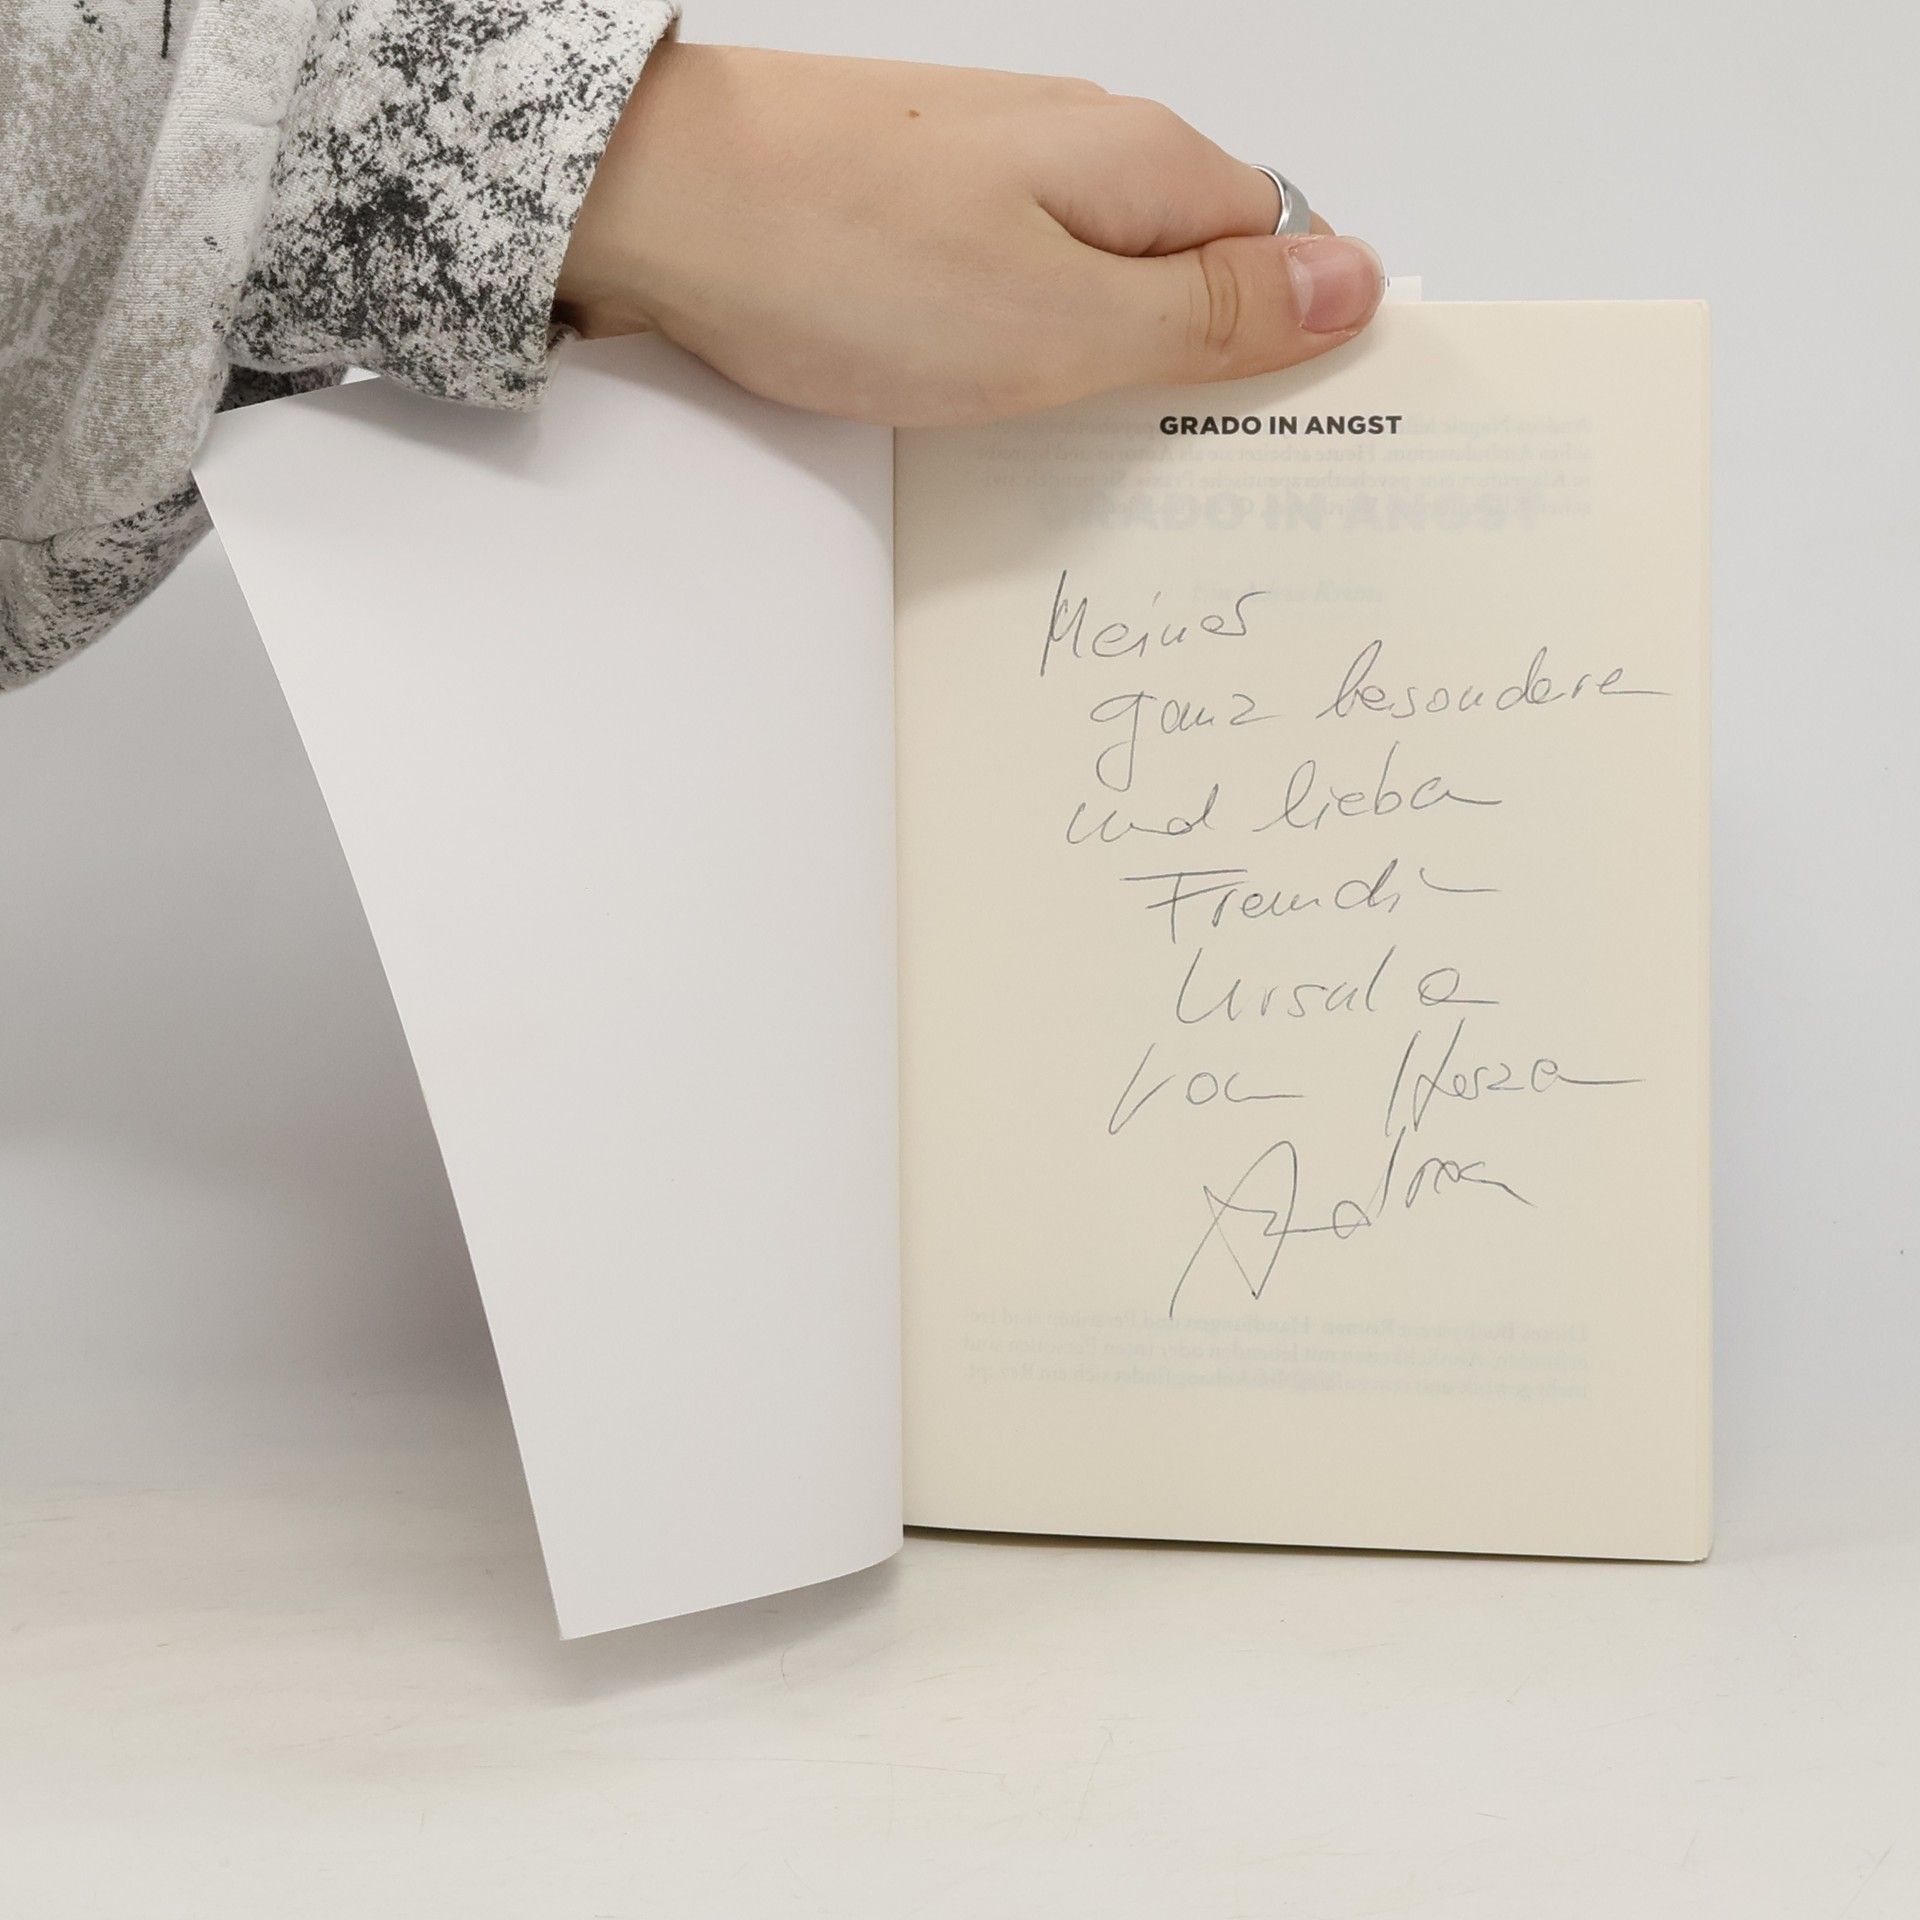 GRADO IN ANGST
Meiner
ganz besonderen
und lieben
Freundin
Ursula
von Herzen
Andrea